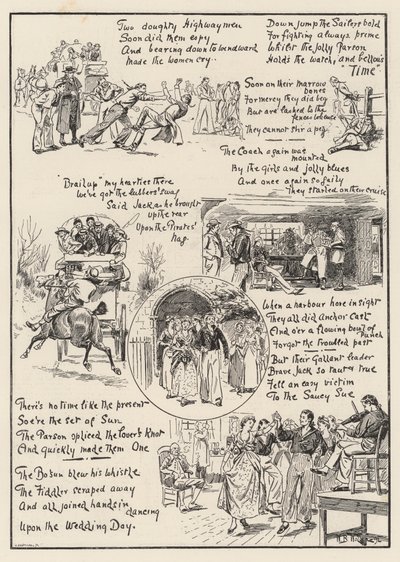 Two doughty Highwaymen
Soon did them espy
And bearing down to windward
Made the women cry.
Down jump the Sailors bold
For fighting always prime
Whilst the Jolly Parson
Holds the watch, and bellows
"Time"
Soon on their marrow
bones
For mercy they did beg
But are lashed to the
fence
They cannot stir a peg
The Coach again was
mounted
By the girls and jolly blues
And once again so gaily
They started on their cruise
"Brail up" my hearties there
We've got the lubbers' swag
Said Jack, as he brought
up the rear
Upon the Pirates'
nag.
When a harbour hove in sight
They all did Anchor Cast
And o'er a flowing bowl of
Punch
Forgot the troubled past
But their Gallant leader
Brave Jack so taut & true
Fell an easy victim
To the Saucy Sue
There's no time like the present
So e're the set of Sun
The Parson spliced the lover's Knot
And quickly made them One
The Bo'sun blew his whistle
The Fiddler scraped away
And all joined hands in
dancing
Upon the Wedding Day.